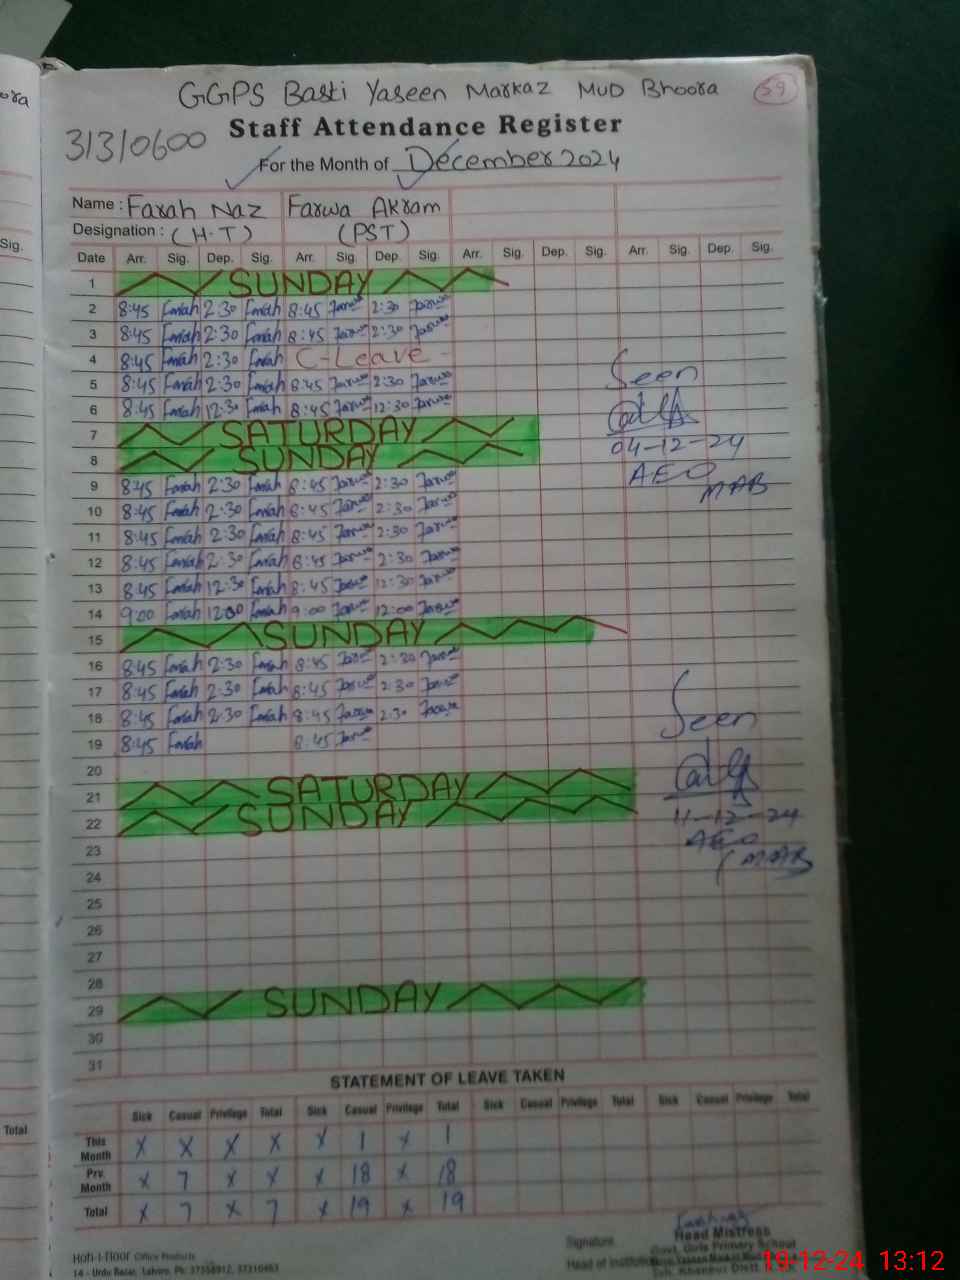 GGPS Basti Yaseen Markaz MUD Bhoora
59
31310600
Staff Attendance Register
For the Month of December 2024
Name : Farah Naz Farwa Akram
Designation : (H.T) (PST)
Date Arr. Sig. Dep. Sig. Arr. Sig. Dep. Sig. Arr. Sig. Dep. Sig. Arr. Sig. Dep. Sig.
1 SUNDAY
2 8:45 Farah 2:30 Farah 8:45 Farwa 2:30 Farwa
3 8:45 Farah 2:30 Farah 8:45 Farwa 2:30 Farwa
4 8:45 Farah 2:30 Farah C-Leave
5 8:45 Farah 2:30 Farah 8:45 Farwa 2:30 Farwa
6 8:45 Farah 12:30 Farah 8:45 Farwa 12:30 Farwa
7 SATURDAY
8 SUNDAY
9 8:45 Farah 2:30 Farah 8:45 Farwa 2:30 Farwa
10 8:45 Farah 2:30 Farah 8:45 Farwa 2:30 Farwa
11 8:45 Farah 2:30 Farah 8:45 Farwa 2:30 Farwa
12 8:45 Farah 2:30 Farah 8:45 Farwa 2:30 Farwa
13 8:45 Farah 12:30 Farah 8:45 Farwa 12:30 Farwa
14 9:00 Farah 12:00 Farah 9:00 Farwa 12:00 Farwa
15 SUNDAY
16 8:45 Farah 2:30 Farah 8:45 Farwa 2:30 Farwa
17 8:45 Farah 2:30 Farah 8:45 Farwa 2:30 Farwa
18 8:45 Farah 2:30 Farah 8:45 Farwa 2:30 Farwa
19 8:45 Farah 8:45 Farwa
20
21 SATURDAY
22 SUNDAY
23
24
25
26
27
28
29 SUNDAY
30
31
Seen
04-12-24
AEO
MAB
Seen
11-12-24
AEO
(MAB
STATEMENT OF LEAVE TAKEN
Sick Casual Privilege Total Sick Casual Privilege Total Sick Casual Privilege Total Sick Casual Privilege Total
This Month x x x x x 1 x 1
Prv. Month x 7 x x x 18 x 18
Total x 7 x 7 x 19 x 19
Signature
Head of Institution
Head Mistress
Govt. Girls Primary School
Hafi-i-Noor Office Products
14 - Urdu Bazar, Lahore. Ph:
19-12-24 13:12
Sig.
Total